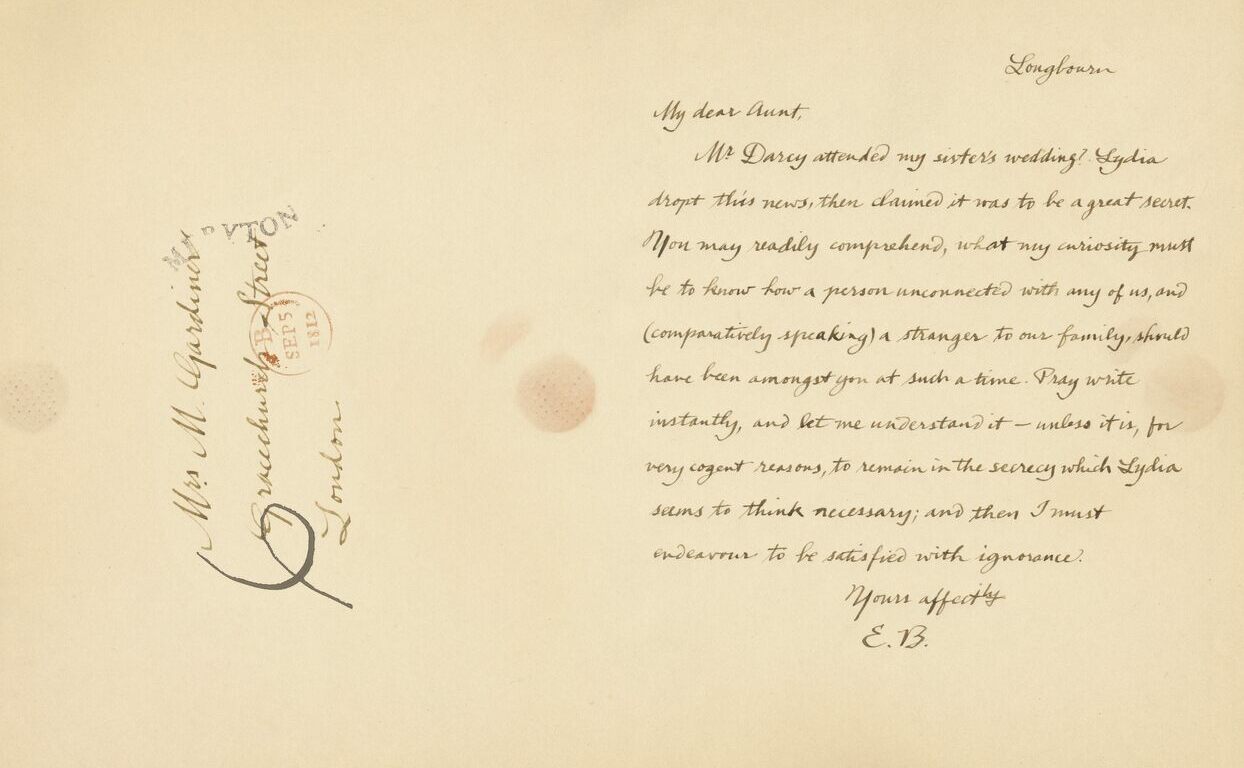 Mrs M. Gardiner
Gracechurch Street
London
MERYTON
B
SEP 5
1812
Longbourn
My dear Aunt,
Mr Darcy attended my sister's wedding? Lydia
dropt this news, then claimed it was to be a great secret.
You may readily comprehend, what my curiosity must
be to know how a person unconnected with any of us, and
(comparatively speaking) a stranger to our family, should
have been amongst you at such a time. Pray write
instantly, and let me understand it — unless it is, for
very cogent reasons, to remain in the secrecy which Lydia
seems to think necessary; and then I must
endeavour to be satisfied with ignorance.
Yours affectily
E. B.